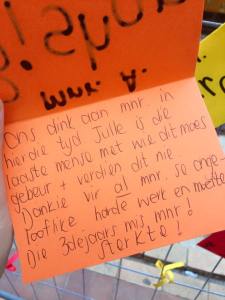 mnr. A.
Ons dink aan mnr. in
hierdie tyd Julle is die
laaste mense met wie dit moes
gebeur + verdien dit nie.
Dankie vir al mnr. se onge-
looflike harde werk en moeite
Die 3dejaars mis mnr!
Sterkte!